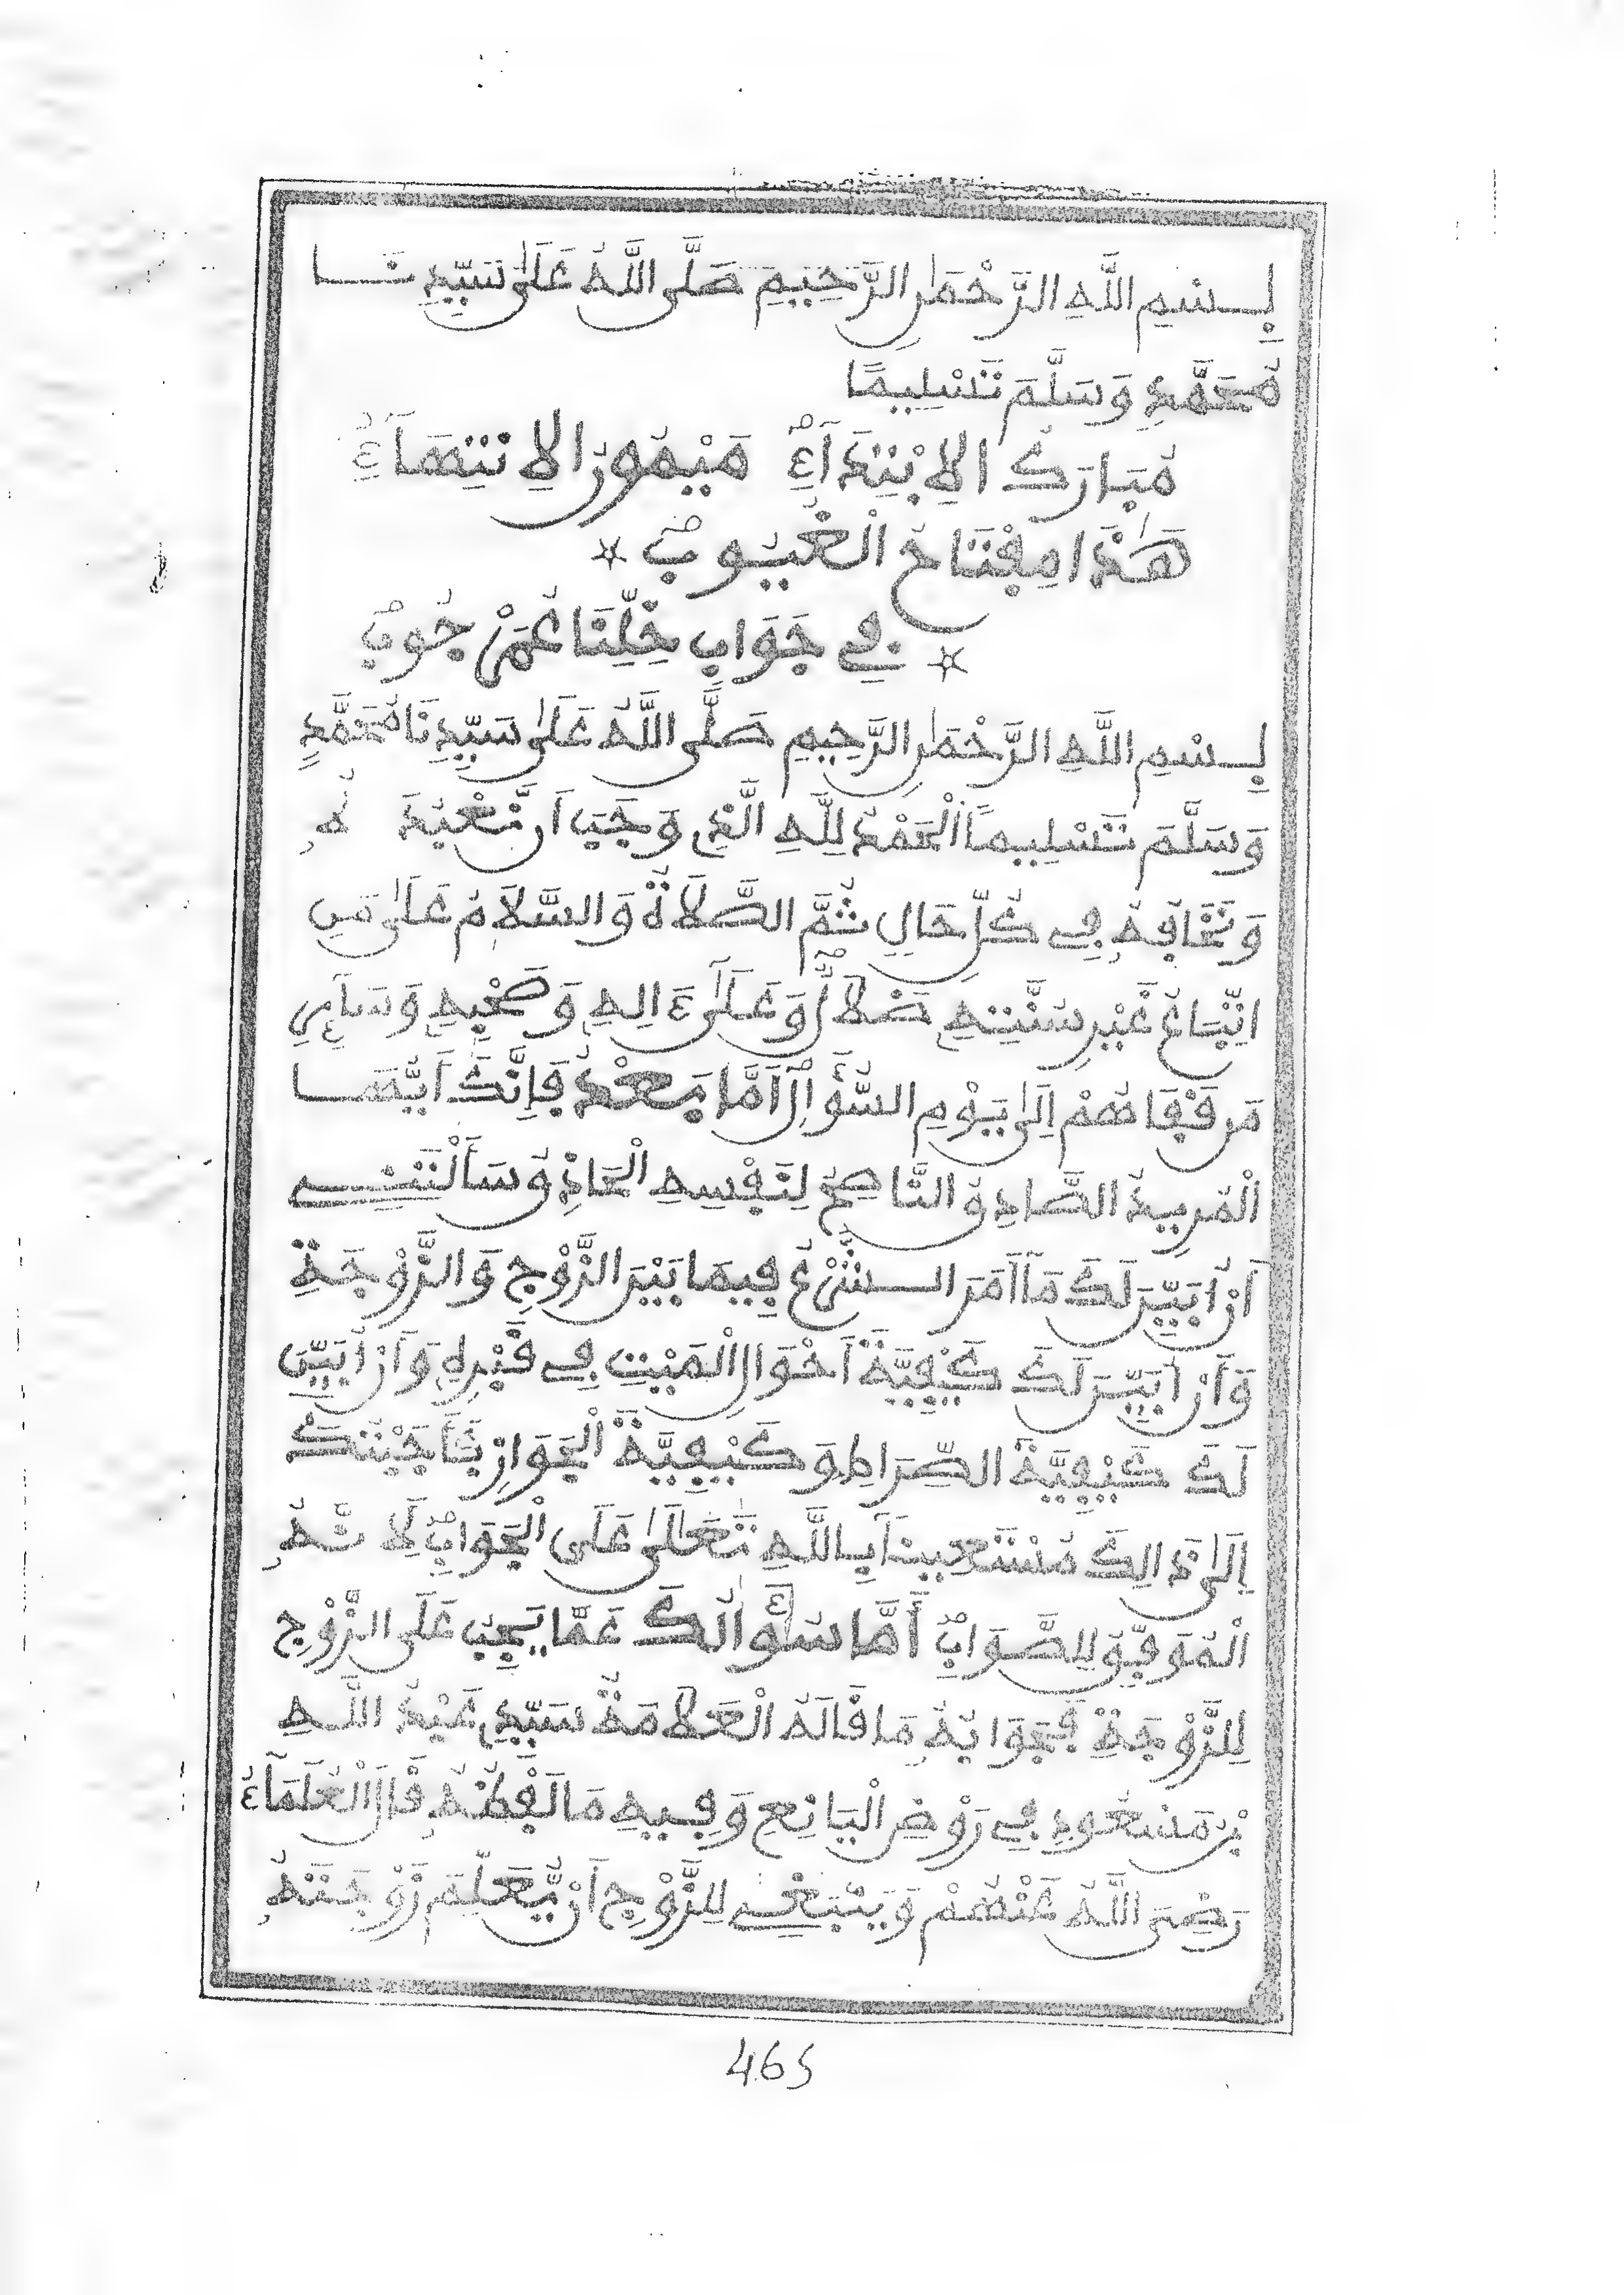 بِسْمِ اللَّهِ الرَّحْمَٰنِ الرَّحِيمِ صَلَّى اللَّهُ عَلَىٰ سَيِّدِنَا
مُحَمَّدٍ وَسَلَّمَ تَسْلِيمًا
مُبَارَكُ الِابْتِدَآءِ مَيْمُونُ الِانْتِهَآءِ
هَٰذَا مِفْتَاحُ الْغُيُوبِ ☆
☆ فِي جَوَابِ خِلِّنَا عُمَرْ جُوبْ
بِسْمِ اللَّهِ الرَّحْمَٰنِ الرَّحِيمِ صَلَّى اللَّهُ عَلَىٰ سَيِّدِنَا مُحَمَّدٍ
وَسَلَّمَ تَسْلِيمًا الْحَمْدُ لِلَّهِ الَّذِي وَجَبَ أَن نَّعْبُدَهُ
وَنَخَافَهُ فِي كُلِّ حَالٍ ثُمَّ الصَّلَاةُ وَالسَّلَامُ عَلَىٰ مَنِ
اتِّبَاعُ غَيْرِ سُنَّتِهِ ضَلَالٌ وَعَلَىٰ ءَالِهِ وَصَحْبِهِ وَسَآئِرِ
مَن قَفَاهُمْ إِلَىٰ يَوْمِ السُّؤَالِ أَمَّا بَعْدُ فَإِنَّكَ أَيُّهَا
الْمُرِيدُ الصَّادِقُ النَّاصِحُ لِنَفْسِهِ الْحَاذِقُ سَأَلْتَنِي
أَنْ أُبَيِّنَ لَكَ مَا أَمَرَ الشَّرْعُ فِيمَا بَيْنَ الزَّوْجِ وَالزَّوْجَةِ
وَأَنْ أُبَيِّنَ لَكَ كَيْفِيَّةَ أَحْوَالِ الْمَيِّتِ فِي قَبْرِهِ وَأَنْ أُبَيِّنَ
لَكَ كَيْفِيَّةَ الصِّرَاطِ وَكَيْفِيَّةَ الْجَوَازِ فَأَجَبْتُكَ
إِلَىٰ ذَالِكَ مُسْتَعِينًا بِاللَّهِ تَعَالَىٰ عَلَى الْجَوَابِ لِأَنَّهُ
الْمُوَفِّقُ لِلصَّوَابِ أَمَّا سُؤَالُكَ عَمَّا يَجِبُ عَلَى الزَّوْجِ
لِلزَّوْجَةِ فَجَوَابُهُ مَا قَالَهُ الْعَلَّامَةُ سَيِّدِي عَبْدُ اللَّهِ
بْنُ مَسْعُودٍ فِي رَوْضِ الْيَانِعِ وَفِيهِ مَا لَفْظُهُ قَالَ الْعُلَمَآءُ
رَضِىَ اللَّهُ عَنْهُمْ وَيَنْبَغِي لِلزَّوْجِ أَنْ يُّعَلِّمَ زَوْجَتَهُ
465